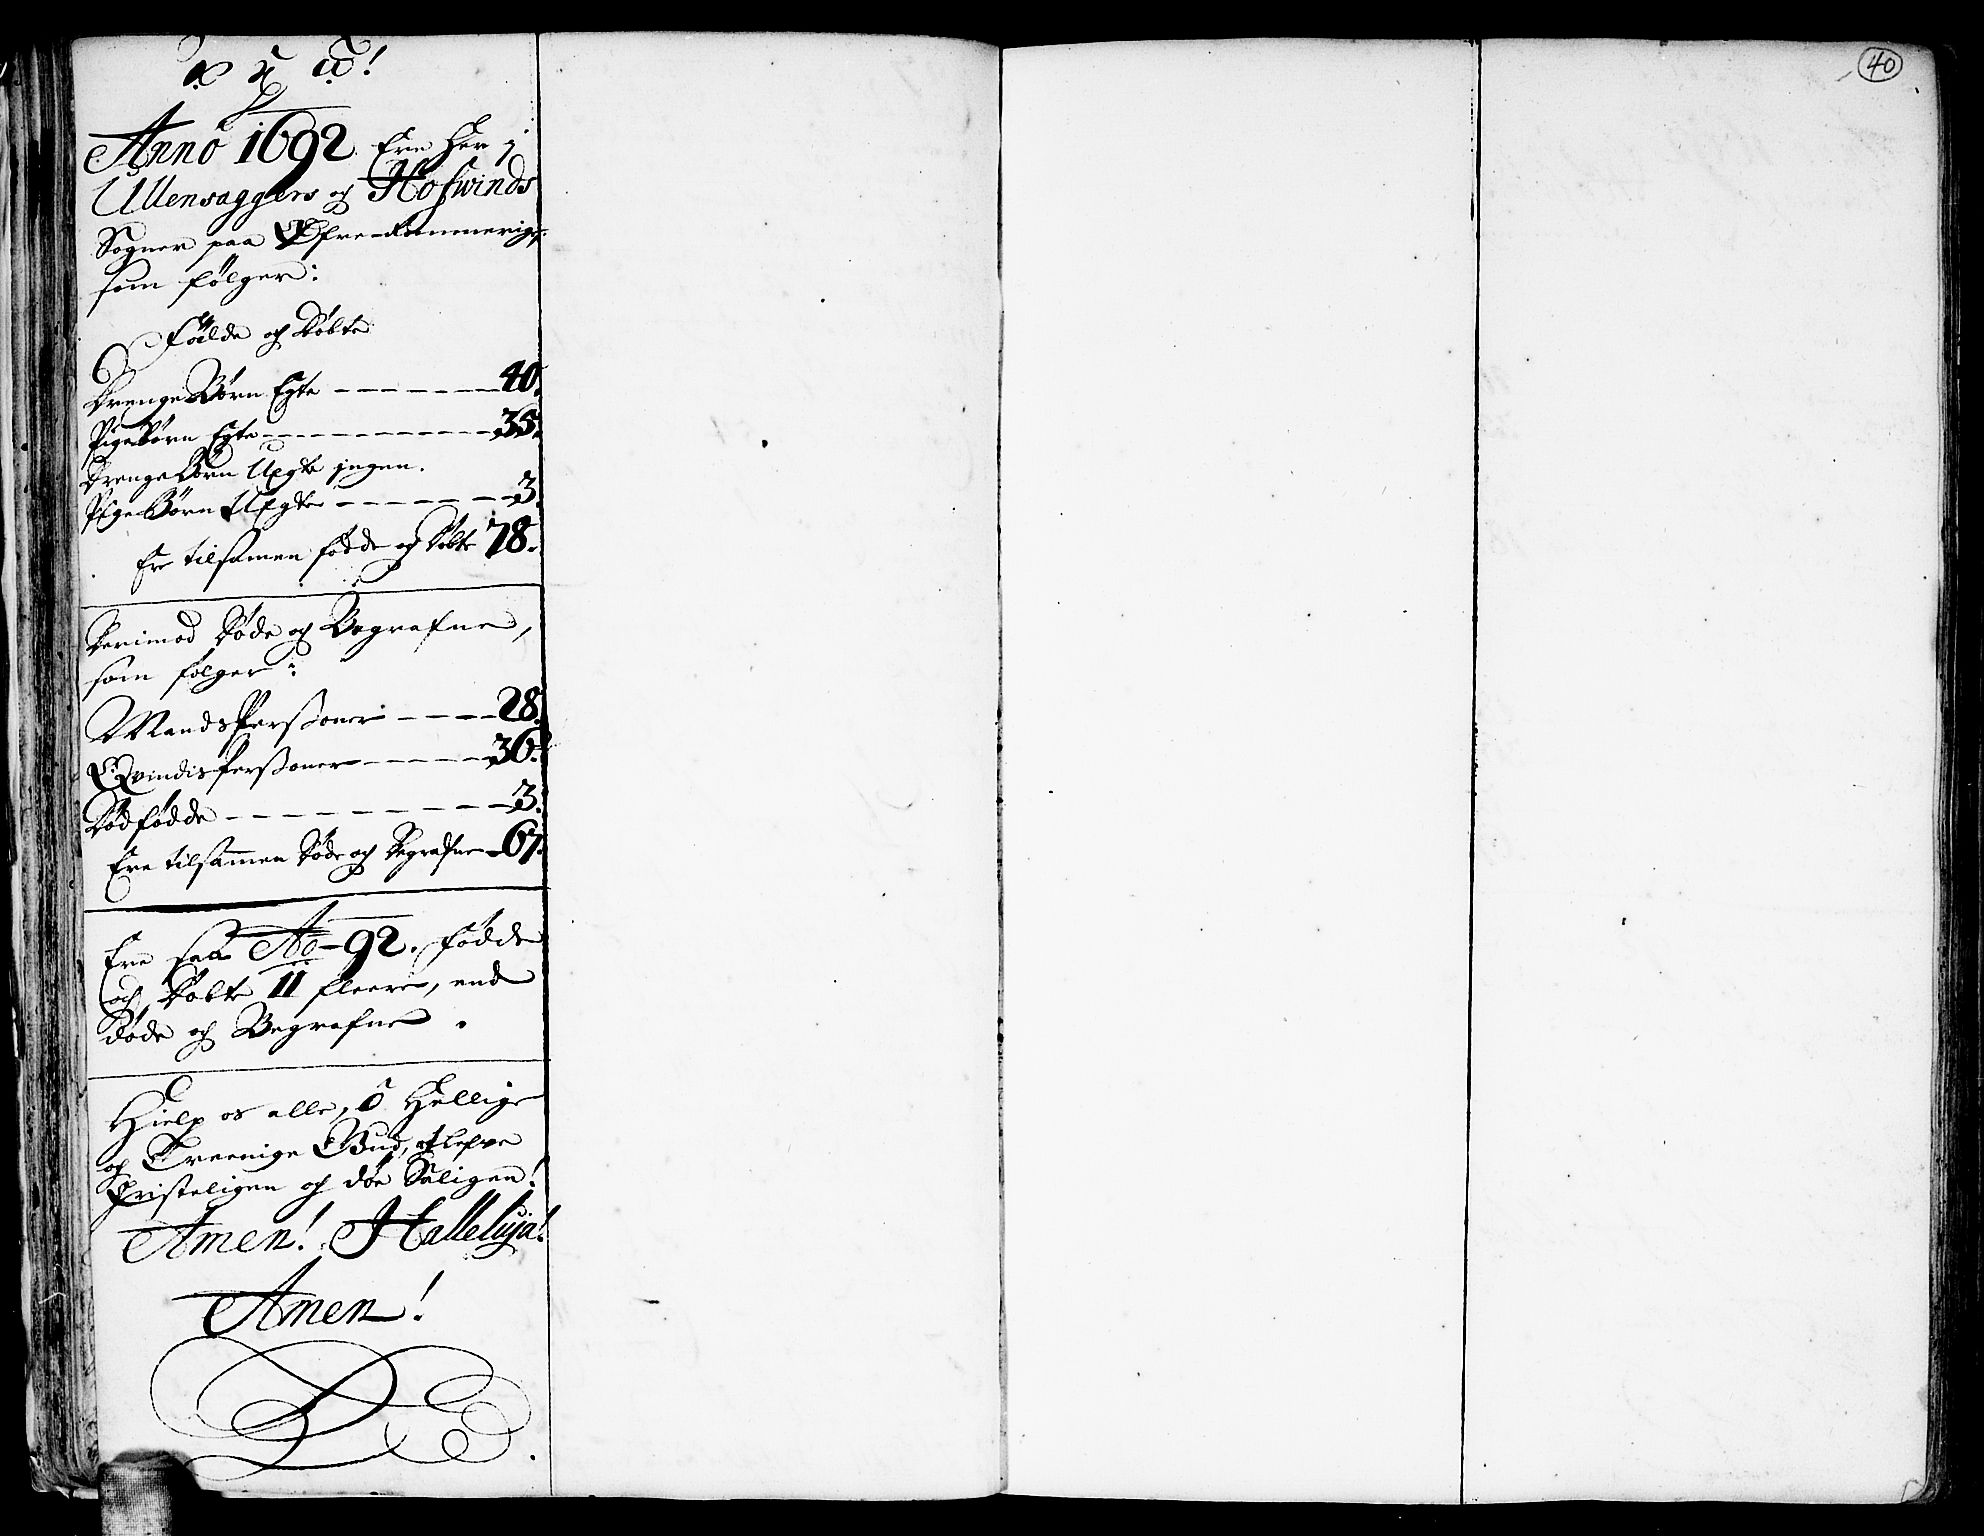 40
Anno 1692. Ere her j
Ullensaggers og Hofwinds
Sogner paa Øfre-Rommerige,
som følger:
Fødde og Døbte
DrengeBørn Egte 40.
PigeBørn Egte 35.
DrengeBørn Uegte jngen.
PigeBørn Uegte 3.
Ere tilsamen fødde og Døbte 78.
Derimod Døde og Begrafne,
som følger:
MandsPersoner 28.
QvindisPersoner 36.
Dødfødde 3.
Ere tilsammen Døde og Begrafne 67.
Ere saa Ao-92. fødde
og Døbte 11 fleere, end
Døde og Begrafne.
Hielp os alle, ô Hellige
og Treenige Gud, at lefve
Christeligen og døe Saligen!
Amen! Halleluja!
Amen!